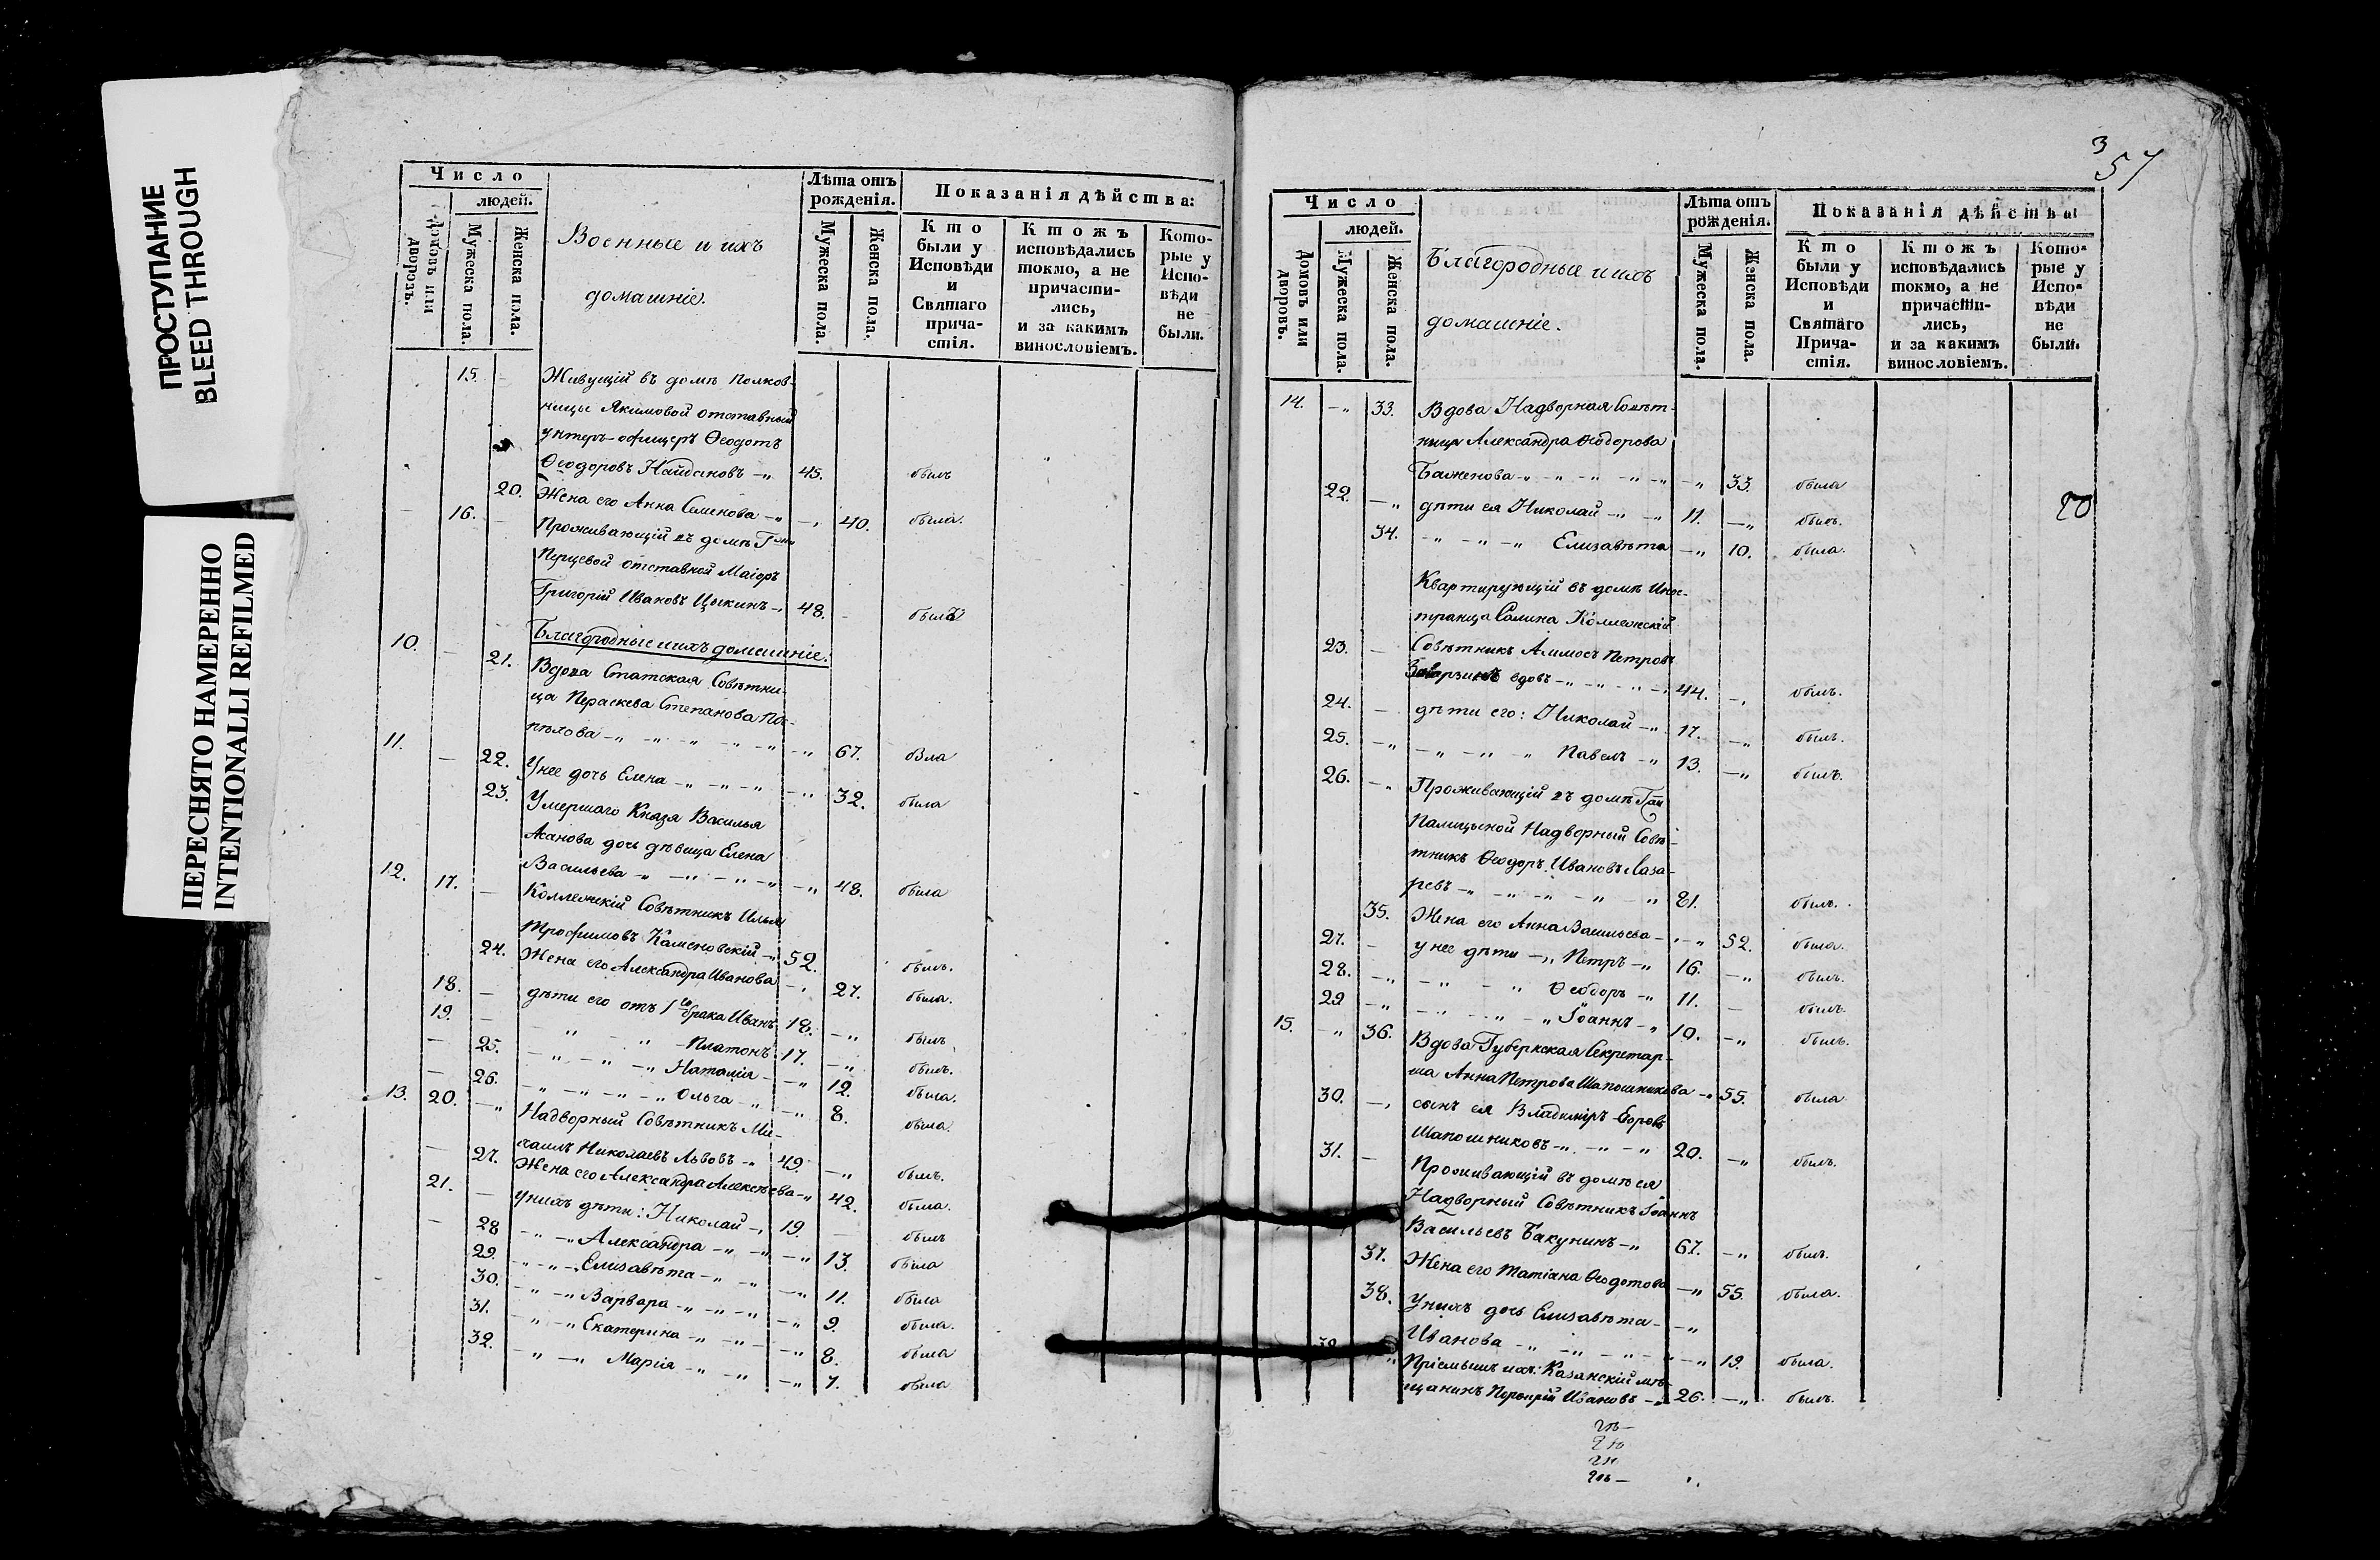 ПРОСТУПАНИЕ
BLEED THROUGH
ПЕРЕСНЯТО НАМЕРЕННО
INTENTIONALLI REFILMED
Число
людей.
Домовъ или дворовъ.
Мужеска пола.
Женска пола.
Военные и ихъ
домашніе.
Лѣта отъ рожденія.
Мужеска пола.
Женска пола.
Показанія дѣйства:
Кто были у Исповѣди и Святаго причастія.
Ктожъ исповѣдались токмо, а не причастились, и за какимъ винословіемъ.
Которые у Исповѣди не были.
15. Живущій въ домѣ Полков-
ницы Якимовой отставный
унтеръ-офицеръ Ѳеодотъ
Ѳеодоровъ Найдановъ 45. былъ
20. Жена его Анна Семенова 40. была.
16. Проживающій въ домѣ Г
Перцевой отставной Маіоръ
Григорій Ивановъ Цыкинъ 48.
Благородные и ихъ домашніе.
10. 21. Вдова Статская Совѣтни-
ца Параскева Степанова
67.
11. 22. У нее дочь Елена 32. была
23. Умершаго Князя Василья
Асанова дочь дѣвица Елена
Васильева 48. была
12. 17. Коллежскій Совѣтникъ Илья
Трофимовъ Каменовскій 52. былъ.
24. Жена его Александра Иванова 27. была.
18. дѣти его отъ 1го брака Иванъ 18. былъ
19. Платонъ 17. былъ.
25. Наталія 12. была.
26. Ольга 8. была.
13. 20. Надворный Совѣтникъ Ми-
хаилъ Николаевъ Львовъ 49. былъ.
27. Жена его Александра Алексѣева 42. была.
21. у нихъ дѣти: Николай 19. былъ
28 Александра 13. была
29. Елизавѣта 11. была
30. Варвара 9. была.
31. Екатерина 8. была
32. Марія 7. была
3
57
Число
людей.
Домовъ или дворовъ.
Мужеска пола.
Женска пола.
Благородные и ихъ
домашніе.
Лѣта отъ рожденія.
Мужеска пола.
Женска пола.
Показанія дѣйства
Кто были у Исповѣди и Святаго Причастія.
Ктожъ исповѣдались токмо, а не причастились, и за какимъ винословіемъ.
Которые у Исповѣди не были.
14. 33. Вдова Надворная Совѣт-
ница Александра Ѳеодорова
Баженова 33. была
22. дѣти ея Николай 11. былъ.
34. Елизавѣта 10. была.
Квартирующій въ домѣ Инос-
транца Салина Коллежскій
23. Совѣтникъ Петровъ
вдовъ 44. былъ.
24. дѣти его: Николай 17. былъ.
25. Павелъ 13. былъ.
26. Проживающій въ домѣ Гжи
Палицыной Надворный Совѣ-
тникъ Ѳеодоръ Ивановъ Лаза-
ревъ 81. былъ.
35. Жена его Анна Васильева 52. была.
27. у нее дѣти Петръ 16. былъ.
28. Ѳеодоръ 11. былъ.
29 Іоаннъ 10. былъ.
15. 36. Вдова Губернская Секретар-
ша Анна Петрова Шапошникова 55. была
30. сынъ ея Владиміръ Егоровъ
Шапошниковъ 20. былъ.
31. Проживающій въ домѣ ея
Надворный Совѣтникъ Іоаннъ
Васильевъ Бакунинъ 67. былъ.
37. Жена его Татіана Ѳеодотова 55. была.
38. У нихъ дочь Елизавѣта
Иванова 19. была.
Пріемышъ ихъ: Казанскій мѣ-
щанинъ Порфирій Ивановъ 26. былъ.